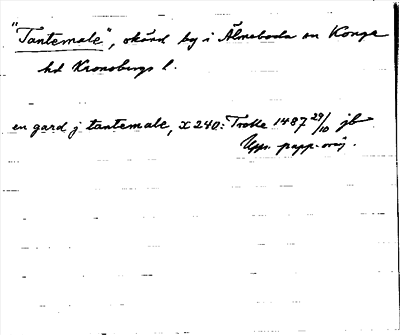 "Tantemale", okänd by i Älmeboda sn Konga
hd Kronobergs l.
en gard j tantemale, X 240: Trolle 1487 29/10 jb
Upps. papp. orig.